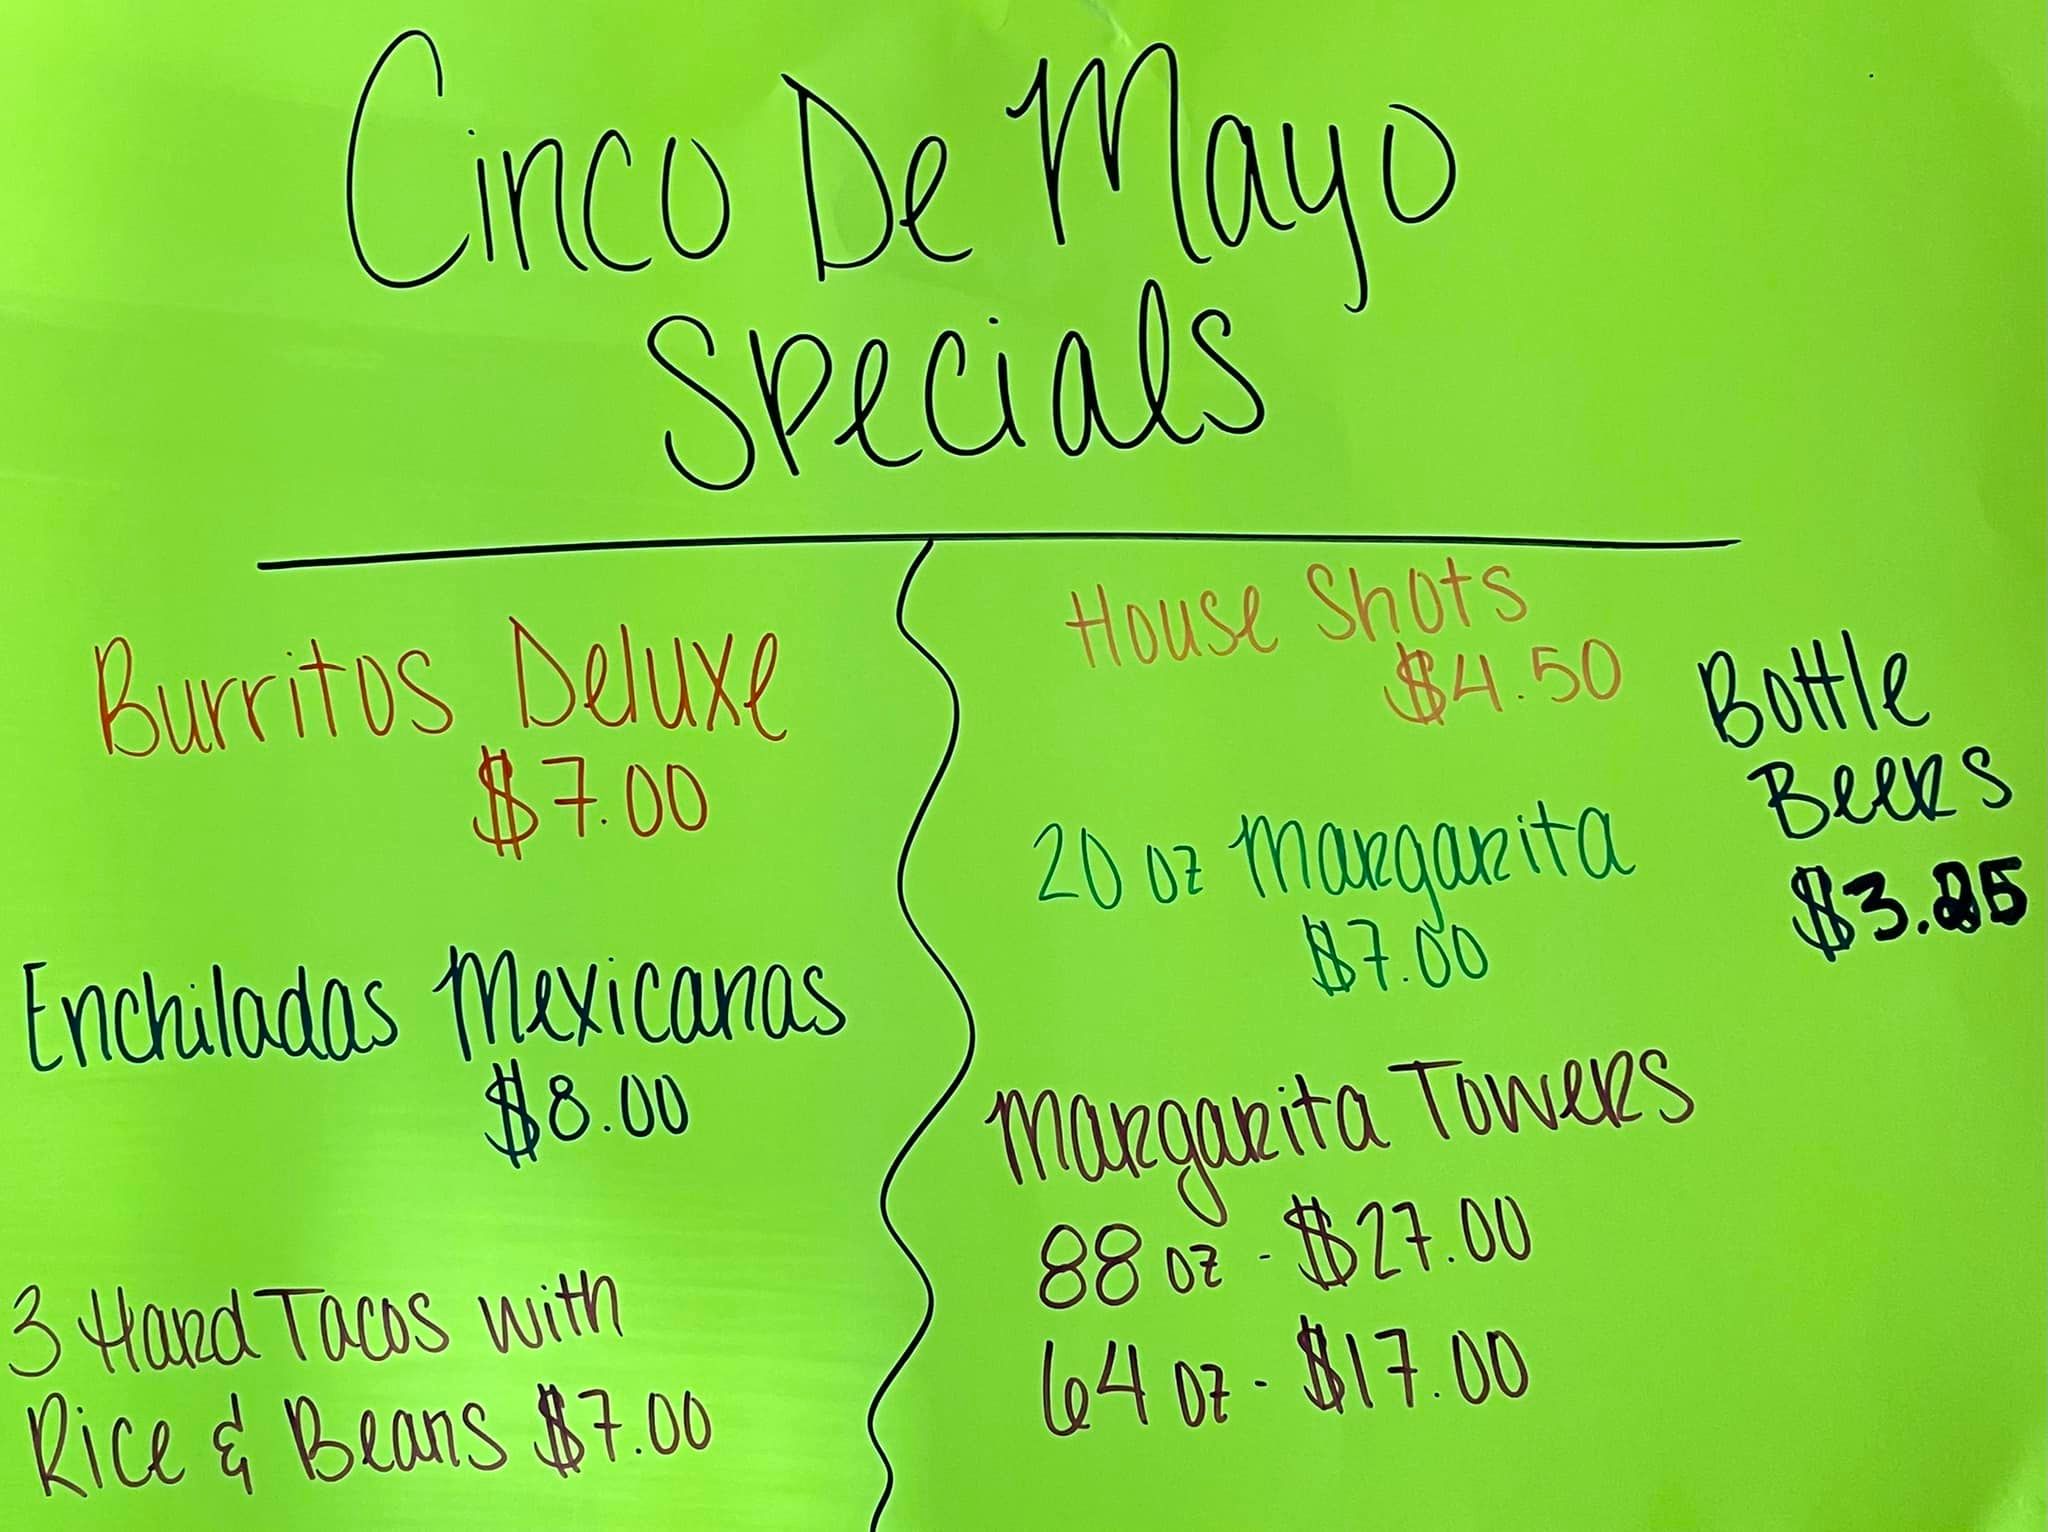 Cinco De Mayo
Specials
Burritos Deluxe
$7.00
Enchiladas Mexicanas
$8.00
3 Hard Tacos with
Rice & Beans $7.00
House Shots
$4.50
20 oz Margarita
$7.00
Margarita Towers
88 oz - $27.00
64 oz - $17.00
Bottle
Beers
$3.25